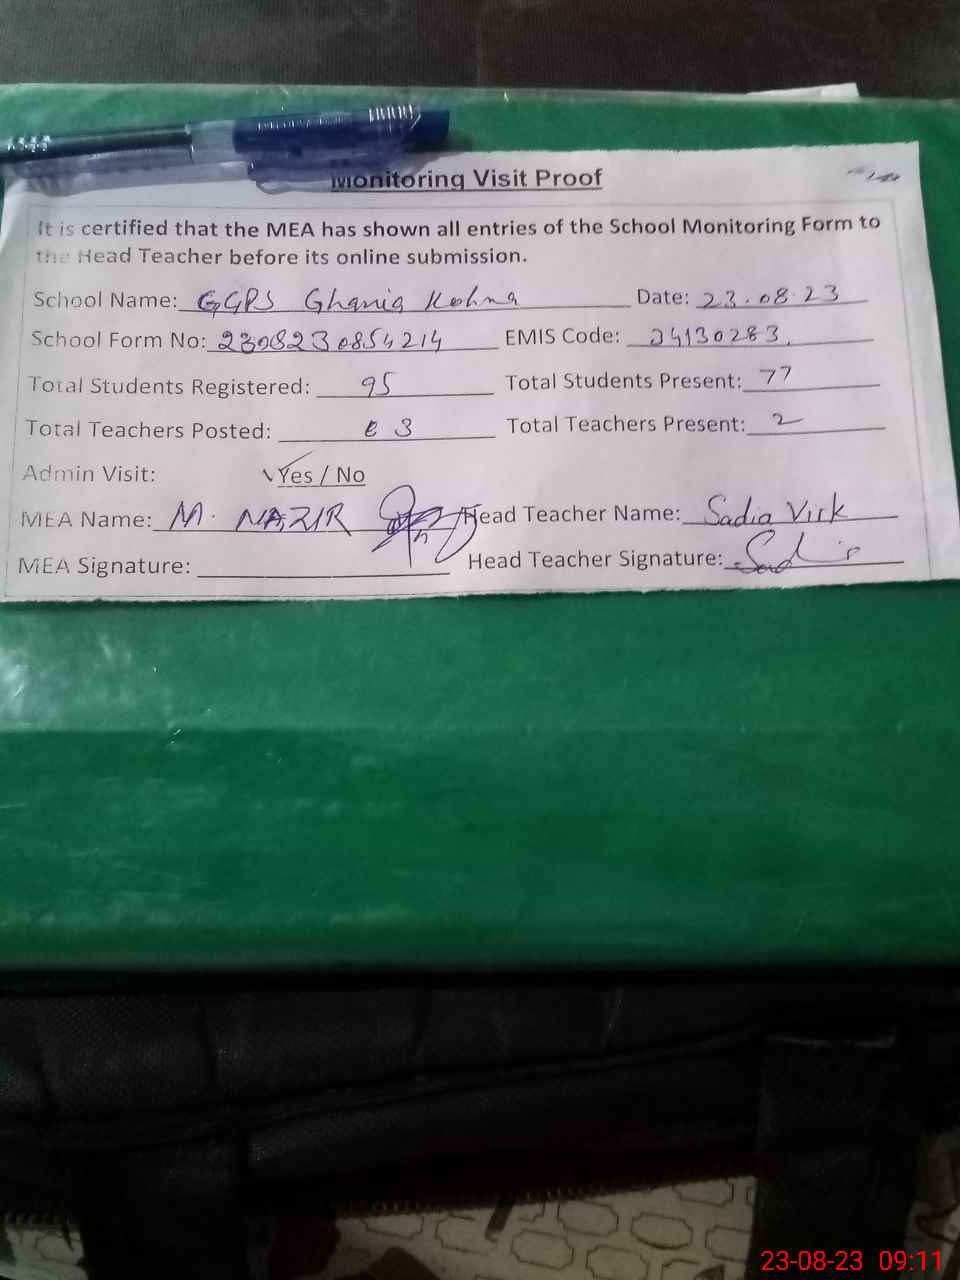 Monitoring Visit Proof
It is certified that the MEA has shown all entries of the School Monitoring Form to
the Head Teacher before its online submission.
School Name: GGPS Ghania Kohna Date: 23.08.23
School Form No: 2308230854214 EMIS Code: 34130283
Total Students Registered: 95 Total Students Present: 77
Total Teachers Posted: 3 Total Teachers Present: 2
Admin Visit: Yes / No
MEA Name: M. NAZIR Head Teacher Name: Sadia Virk
MEA Signature: Head Teacher Signature: Sadia
23-08-23 09:11